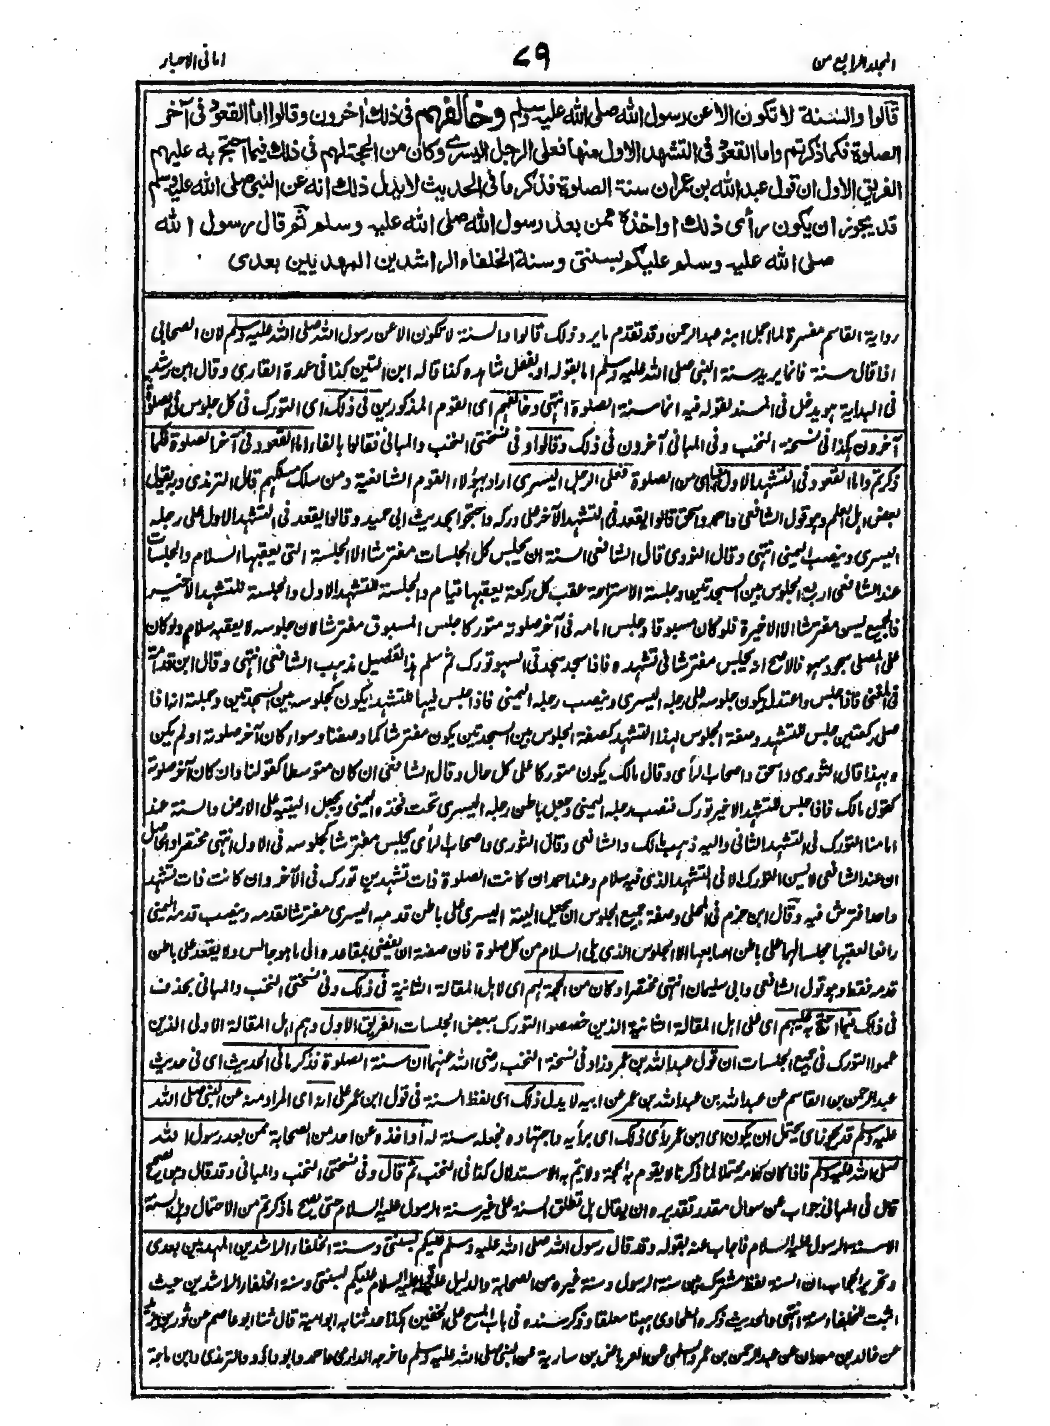 المجلد الرابع من
٨٩
امانی الاحبار
قالوا والسنة لا تكون الا عن رسول الله صلى الله عليه وسلم وخالفهم فى ذلك اخرون وقالوا اما القعود فى آخر
الصلوة فكما ذكرتم واما القعود فى التشهد الاول منها فعلى الرجل اليسرى وكان من الحجة لهم فى ذلك فيما احتج به عليهم
الفريق الاول ان قول عبد الله بن عمر ان سنة الصلوة فذكر ما فى الحديث لا يدل ذلك انه عن النبى صلى الله عليه وسلم
قد يجوز ان يكون رأى ذلك او اخذه ممن بعد رسول الله صلى الله عليه وسلم ثم قال رسول الله
صلى الله عليه وسلم عليكم بسنتى وسنة الخلفاء الراشدين المهديين بعدى
رواية القاسم مفسرة لما اجمل ابنه عبد الرحمن وقد تقدم ما يرد ذلك قالوا والسنة لا تكون الا عن رسول الله صلى الله عليه وسلم لان الصحابى
اذا قال سنة فانما يريد سنة النبى صلى الله عليه وسلم اما بقوله او بفعل شاهده كذا قاله ابن التين كذا فى عمدة القارى وقال ابن رشد
فى البداية هو يدخل فى المسند لقوله فيه انما سنة الصلوة انتهى وخالفهم اى القوم المذكورين فى ذلك اى التورك فى كل جلوس فى الصلوة
آخرون هكذا فى نسخة النخب وفى المبانى آخرون فى ذلك وقالوا وفى نسختى النخب والمبانى فقالوا بالفاء اما القعود فى آخر الصلوة فكما
ذكرتم واما القعود فى التشهد الاول منها اى من الصلوة فعلى الرجل اليسرى اراد بهؤلاء القوم الشافعية ومن سلك مسلكهم قال الترمذى وبه يقول
بعض اهل العلم وهو قول الشافعى واحمد واسحق قالوا يقعد فى التشهد الآخر على وركه واحتجوا بحديث ابى حميد وقالوا يقعد فى التشهد الاول على رجله
اليسرى وينصب اليمنى انتهى وقال النووى قال الشافعى السنة ان يجلس كل الجلسات مفترشا الا الجلسة التى يعقبها السلام والجلسات
عند الشافعى اربع الجلوس بين السجدتين وجلسة الاستراحة عقب كل ركعة يعقبها قيام والجلسة للتشهد الاول والجلسة للتشهد الاخير
فالجميع يسن مفترشا الا الاخيرة فلو كان مسبوقا وجلس امامه فى آخر صلوته متوركا جلس المسبوق مفترشا لان جلوسه لا يعقبه سلام ولو كان
على المصلى سجود سهو فالاصح انه يجلس مفترشا فى تشهده فاذا سجد سجدتى السهو تورك ثم سلم هذا تفصيل مذهب الشافعى انتهى وقال ابن قدامة
فى المغنى فاذا جلس واعتدل يكون جلوسه على رجله اليسرى وينصب رجله اليمنى فاذا جلس فيها للتشهد يكون كجلوسه بين السجدتين وجملته انه اذا
صلى ركعتين جلس للتشهد وصفة الجلوس لهذا التشهد كصفة الجلوس بين السجدتين يكون مفترشا كما وصفنا وسواء كان آخر صلوته او لم يكن
وبهذا قال الثورى واسحق واصحاب الرأى وقال مالك يكون متوركا على كل حال وقال الشافعى ان كان متوسطا كقولنا وان كان آخر صلوته
كقول مالك فاذا جلس للتشهد الاخير تورك فنصب رجله اليمنى وجعل باطن رجله اليسرى تحت فخذه اليمنى ويجعل اليتيه على الارض والسنة عند
امامنا التورك فى التشهد الثانى واليه ذهب مالك والشافعى وقال الثورى واصحاب الرأى يجلس مفترشا كجلوسه فى الاول انتهى مختصرا والحاصل
ان عند الشافعى لا يسن التورك الا فى التشهد الذى فيه سلام وعند احمد ان كانت الصلوة ذات تشهدين تورك فى الآخر وان كانت ذات تشهد
واحد افترش فيه وقال ابن حزم فى المحلى وصفة جميع الجلوس ان يجعل اليته اليسرى على باطن قدمه اليسرى مفترشا لقدمه وينصب قدمه اليمنى
رافعا لعقبها مجلسا لها على باطن اصابعها الا الجلوس الذى يلى السلام من كل صلوة فان صفته ان يفضى بمقاعده الى ما هو جالس ولا يقعد على باطن
قدمه فقط وهو قول الشافعى وابى سليمان انتهى مختصرا وكان من الحجة لهم اى لاهل المقالة الثانية فى ذلك وفى نسختى النخب والمبانى بحذف
فى ذلك فيما احتج به عليهم اى على اهل المقالة الثانية الذين خصصوا التورك ببعض الجلسات الفريق الاول وهم اهل المقالة الاولى الذين
عمموا التورك فى جميع الجلسات ان قول عبد الله بن عمر وزاد فى نسخة النخب رضى الله عنهما ان سنة الصلوة فذكر ما فى الحديث اى فى حديث
عبد الرحمن بن القاسم عن عبد الله بن عبد الله بن عمر عن ابيه لا يدل ذلك اى لفظ السنة فى قول ابن عمر على انه اى المراد منه عن النبى صلى الله
عليه وسلم قد يجوز اى يحتمل ان يكون اى ابن عمر رأى ذلك اى برأيه واجتهاده فجعله سنة له او اخذه عن احد من الصحابة ممن بعد رسول الله
صلى الله عليه وسلم فاذا كان كلامه محتملا لما ذكرنا لا يقوم به الحجة ولا يتم به الاستدلال كذا فى النخب ثم قال وفى نسختى النخب والمبانى وقد قال
قال فى المبانى جواب عن سوال مقدر تقديره ان يقال هل تطلق السنة على غير سنة الرسول عليه السلام حتى يصح ما ذكرتم من الاحتمال وهل السنة
الا سنة الرسول عليه السلام فاجاب عنه بقوله وقد قال رسول الله صلى الله عليه وسلم عليكم بسنتى وسنة الخلفاء الراشدين المهديين بعدى
وتحرير الجواب ان السنة لفظ مشترك بين سنة الرسول وسنة غيره من الصحابة والدليل عليه قوله عليه السلام عليكم بسنتى وسنة الخلفاء الراشدين حيث
اثبت للخلفاء سنة انتهى والحديث ذكره الطحاوى ههنا معلقا وذكر سنده فى باب المسح على الخفين هكذا حدثنا به ابو امية قال ثنا ابو عاصم عن ثور بن يزيد
عن خالد بن معدان عن عبد الرحمن بن عمرو السلمى عن العرباض بن سارية عن النبى صلى الله عليه وسلم واخرجه الدارمى واحمد وابو داؤد والترمذى وابن ماجة